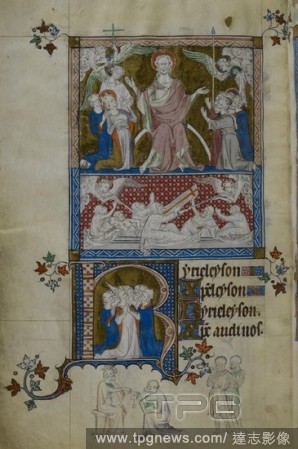 kyrieleyson
Xpeleyson
kyrieleyson.
Xpe audi nos.
TPG
www.tpgnews.com / 達志影像